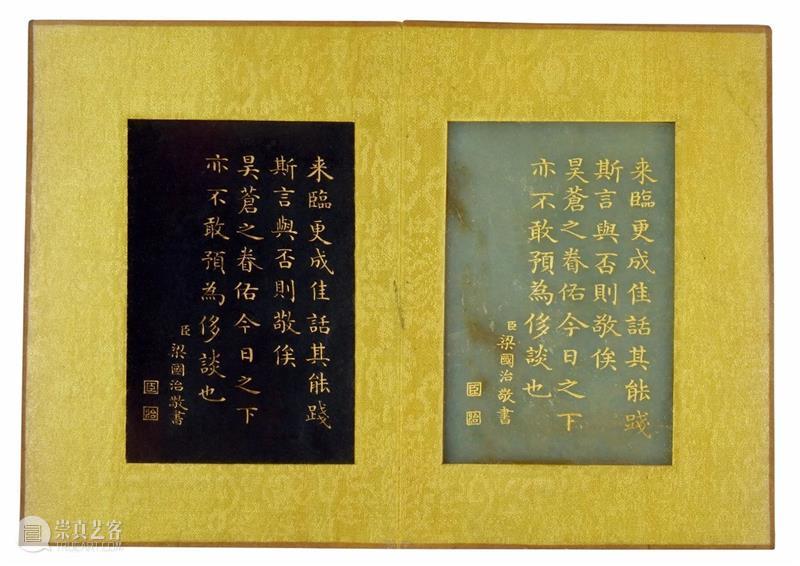 来臨更成佳話其能踐
斯言與否則敬俟
昊蒼之眷佑今日之下
亦不敢預為侈談也
臣梁國治敬書
臣
治
来臨更成佳話其能踐
斯言與否則敬俟
昊蒼之眷佑今日之下
亦不敢預為侈談也
臣梁國治敬書
臣
治
崇真艺客
TRUEART.COM